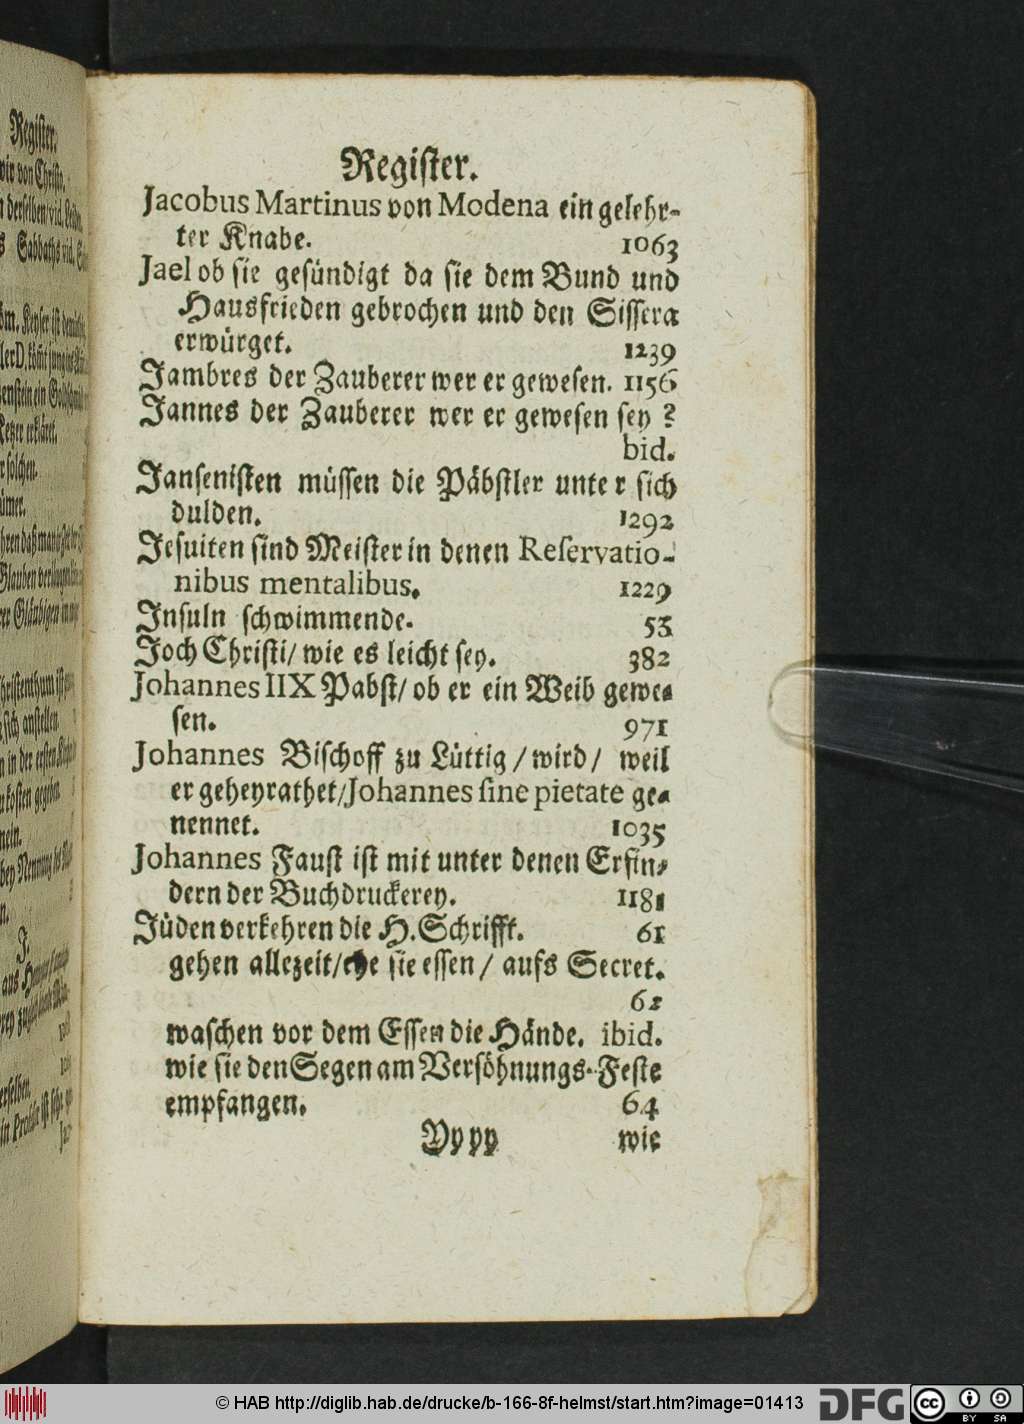 Register.
Jacobus Martinus von Modena ein gelehr-
ter Knabe. 1063
Jael ob sie gesündigt da sie dem Bund und
Hausfrieden gebrochen und den Sissera
erwürget. 1239
Jambres der Zauberer wer er gewesen. 1156
Jannes der Zauberer wer er gewesen sey ?
bid.
Jansenisten müssen die Päbstler unter sich
dulden. 1292
Jesuiten sind Meister in denen Reservatio-
nibus mentalibus. 1229
Insuln schwimmende. 53
Joch Christi/ wie es leicht sey. 382
Johannes IIX Pabst/ ob er ein Weib gewe-
sen. 971
Johannes Bischoff zu Lüttig / wird / weil
er geheyrathet/Johannes sine pietate ge-
nennet. 1035
Johannes Faust ist mit unter denen Erfin-
dern der Buchdruckerey. 1181
Jüden verkehren die H. Schrifft. 61
gehen allezeit/ehe sie essen / aufs Secret.
61
waschen vor dem Essen die Hände. ibid.
wie sie den Segen am Versöhnungs-Feste
empfangen. 64
Yyyy wie
© HAB http://diglib.hab.de/drucke/b-166-8f-helmst/start.htm?image=01413
DFG
cc
BY SA